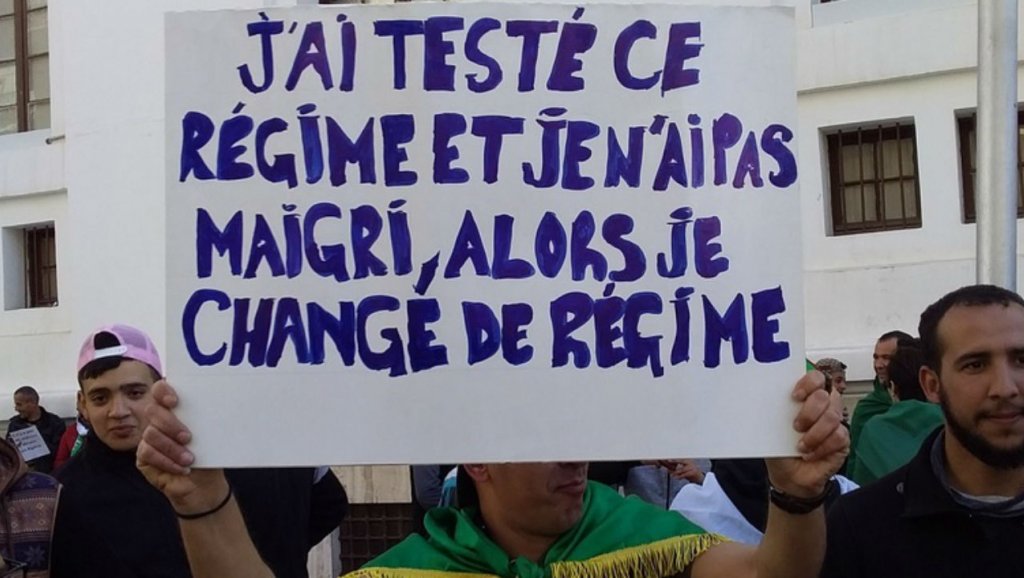 J'AI TESTÉ CE
RÉGIME ET JE N'AI PAS
MAIGRI, ALORS JE
CHANGÉ DE RÉGIME